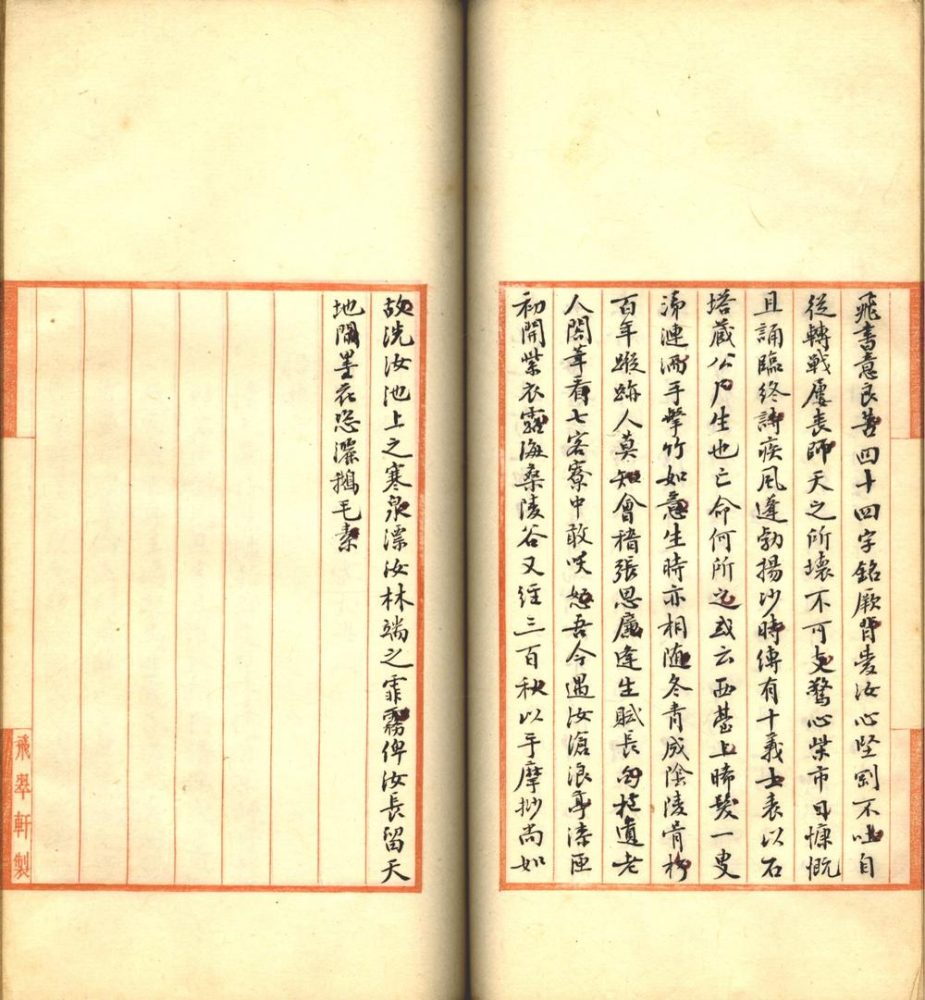 飛書意良苦四十四字銘厥背愛汝心堅剛不吐自
從轉戰屢喪師天之所壞不可支驚心柴市日慷慨
且誦臨終詩疾風蓬勃揚沙時傳有十義士表以石
塔藏公尸生也亡命何所之或云西臺上晞髮一叟
涕漣洏手擊竹如意生時亦相隨冬青成陰陵骨朽
百年蹤跡人莫知會稽張思廉逢生賦長句抱遺老
人閣筆看七客寮中敢咲怒吾今遇汝滄浪亭漆匣
初開紫衣露海桑陵谷又經三百秋以手摩抄尚如
故洗汝池上之寒泉漂汝林端之霏霧俾汝長留天
地間墨花恣灑鵝毛素
飛翠軒製